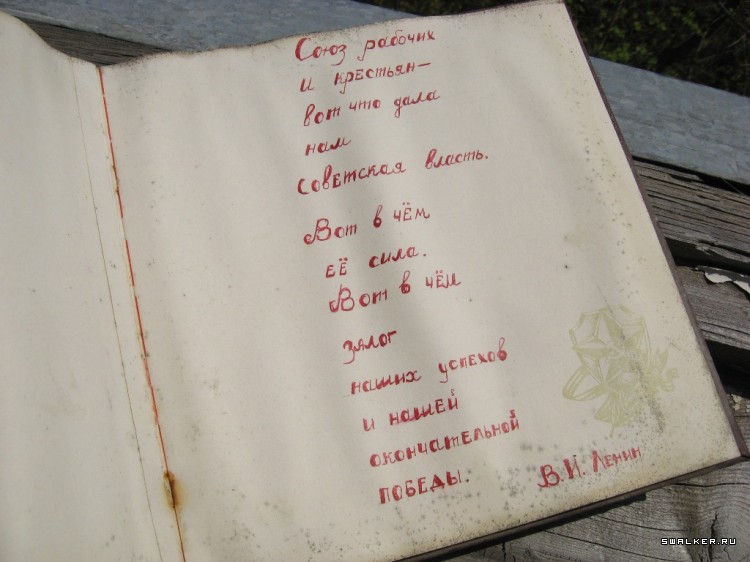 Союз рабочих
и крестьян—
вот что дала
нам
Советская власть.
Вот в чём
её сила.
Вот в чём
залог
наших успехов
и нашей
окончательной
победы.
В.И. Ленин
SWALKER.RU